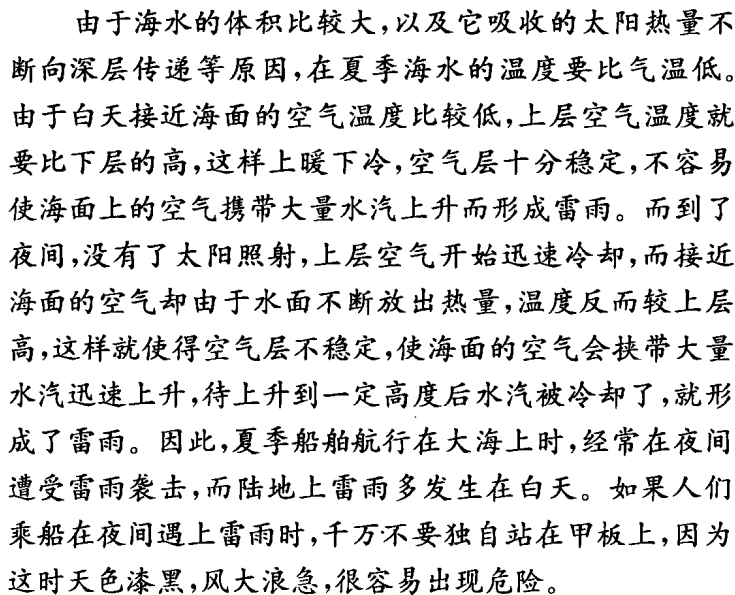 由于海水的体积比较大,以及它吸收的太阳热量不
断向深层传递等原因,在夏季海水的温度要比气温低。
由于白天接近海面的空气温度比较低,上层空气温度就
要比下层的高,这样上暖下冷,空气层十分稳定,不容易
使海面上的空气携带大量水汽上升而形成雷雨。而到了
夜间,没有了太阳照射,上层空气开始迅速冷却,而接近
海面的空气却由于水面不断放出热量,温度反而较上层
高,这样就使得空气层不稳定,使海面的空气会挟带大量
水汽迅速上升,待上升到一定高度后水汽被冷却了,就形
成了雷雨。因此,夏季船舶航行在大海上时,经常在夜间
遭受雷雨袭击,而陆地上雷雨多发生在白天。如果人们
乘船在夜间遇上雷雨时,千万不要独自站在甲板上,因为
这时天色漆黑,风大浪急,很容易出现危险。